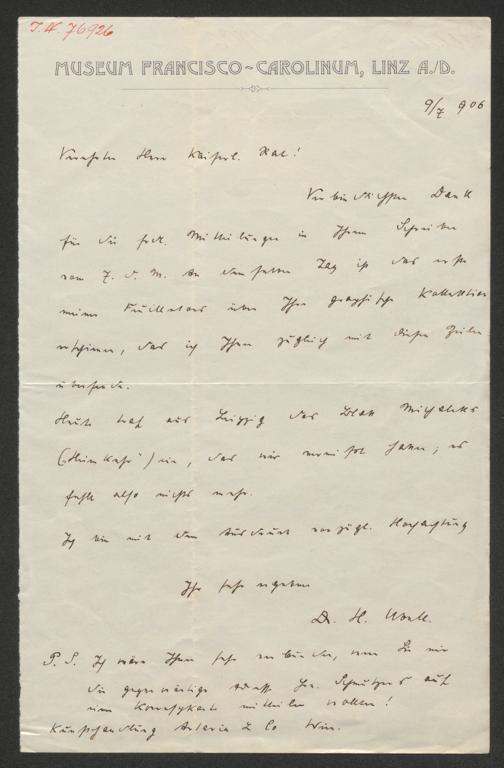 I.N. 76926
MUSEUM FRANCISCO-CAROLINUM, LINZ A./D.
9/7 906
Verehrter Herr Kaiserl. Rat!
Verbindlichsten Dank
für die frdl. Mitteilungen in Ihrem Schreiben
vom 7. d. M. An demselben Tag ist das erste
meiner Feuilletons über Ihre graphische Kollektion
erschienen, das ich Ihnen zugleich mit diesen Zeilen
übersende.
Heute traf aus Leipzig das Blatt Michaleks
("Heimkehr") ein, das wir vermißt haben; es
fehlt also nichts mehr.
Ich bin mit dem Ausdruck vorzügl. Hochachtung
Ihr sehr ergebener
Dr. H. Ubell.
P. S. Ich wäre Ihnen sehr verbunden, wenn Sie mir
die gegenwärtige Adresse Hr. Schmutzers auf
einer Korrespkarte mitteilen wollten!
Kunsthandlung Artaria & Co Wien.